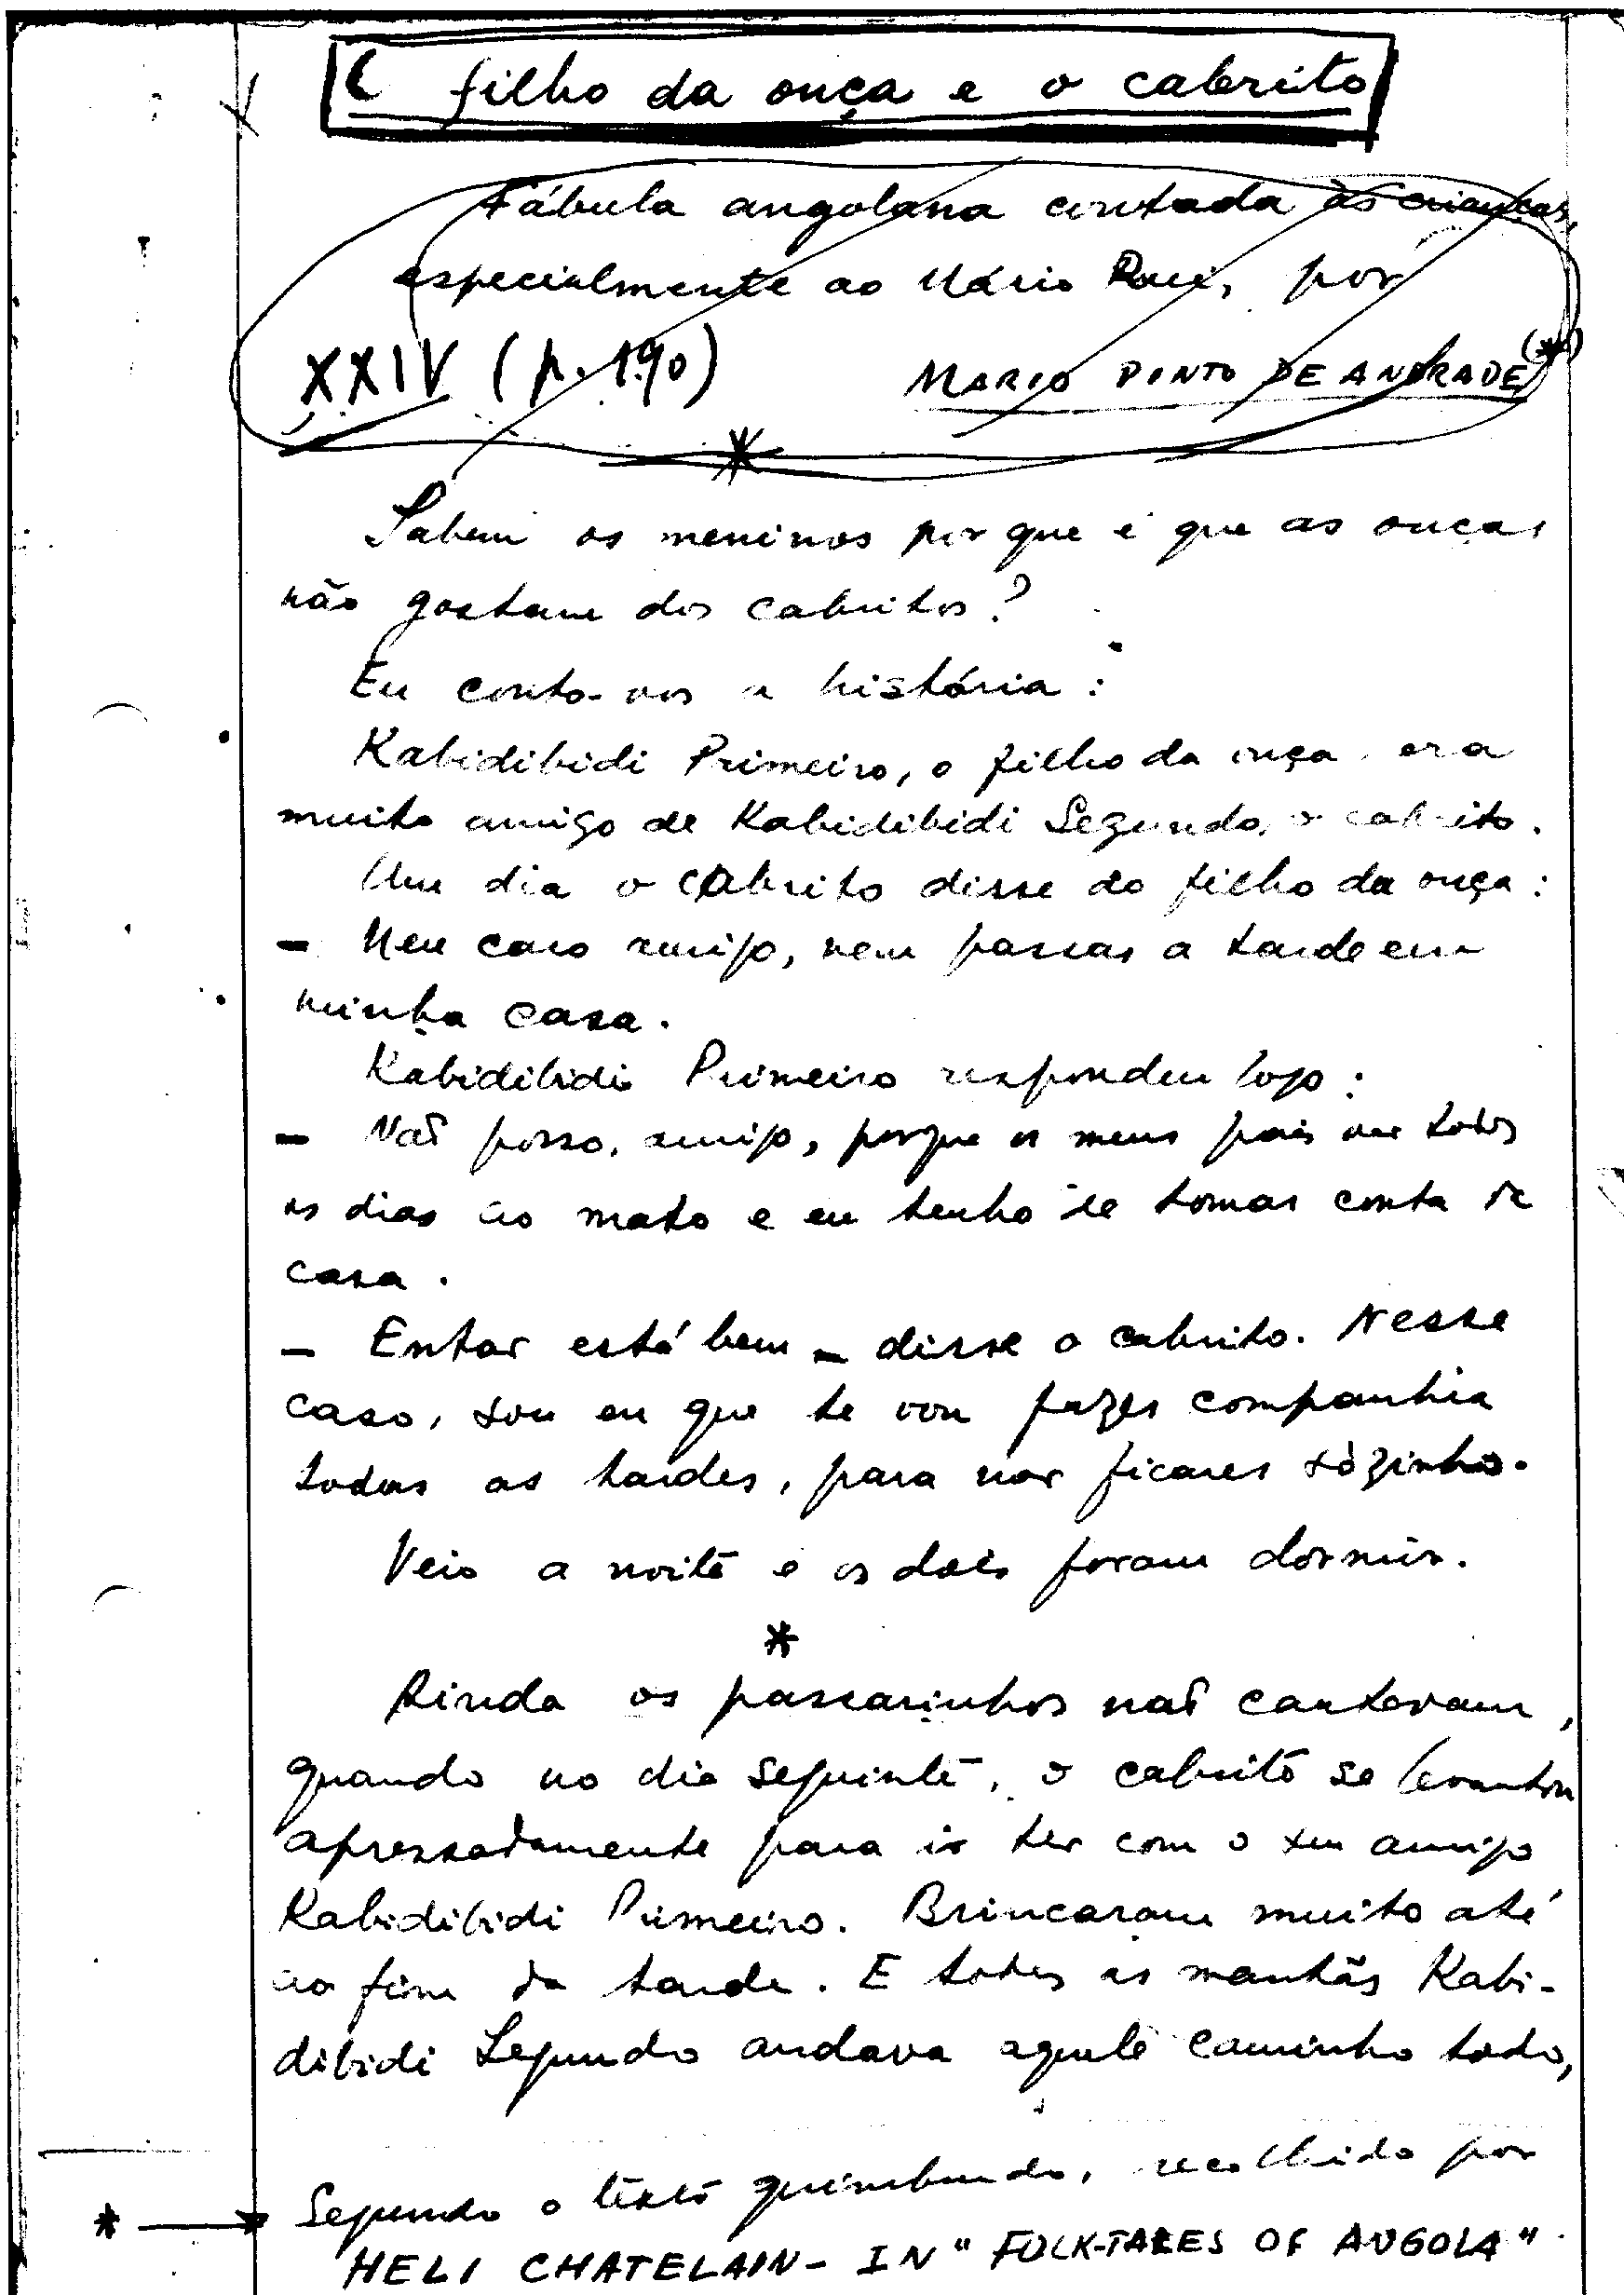 O filho da onça e o cabrito
Fábula angolana contada às crianças,
especialmente ao Mário Rui, por
XXIV (p. 190)
MARIO PINTO DE ANDRADE (*)
*
Sabem os meninos por que é que as onças
não gostam dos cabritos?
Eu conto-vos a história:
Kabidibidi Primeiro, o filho da onça, era
muito amigo de Kabidibidi Segundo, o cabrito.
Um dia o cabrito disse ao filho da onça:
- Meu caro amigo, vem passar a tarde em
minha casa.
Kabidibidi Primeiro respondeu logo:
- Não posso, amigo, porque os meus pais vão todos
os dias ao mato e eu tenho de tomar conta da
casa.
- Então está bem - disse o cabrito. Nesse
caso, sou eu que te vou fazer companhia
todas as tardes, para não ficares sòzinho.
Veio a noite e os dois foram dormir.
*
Ainda os passarinhos não cantavam,
quando no dia seguinte, o cabrito se levantou
apressadamente para ir ter com o seu amigo
Kabidibidi Primeiro. Brincaram muito até
ao fim da tarde. E todas as manhãs Kabi-
dibidi Segundo andava aquele caminho todo,
* Segundo o texto quimbundo, recolhido por
HELI CHATELAIN - IN "FOLK-TALES OF ANGOLA"